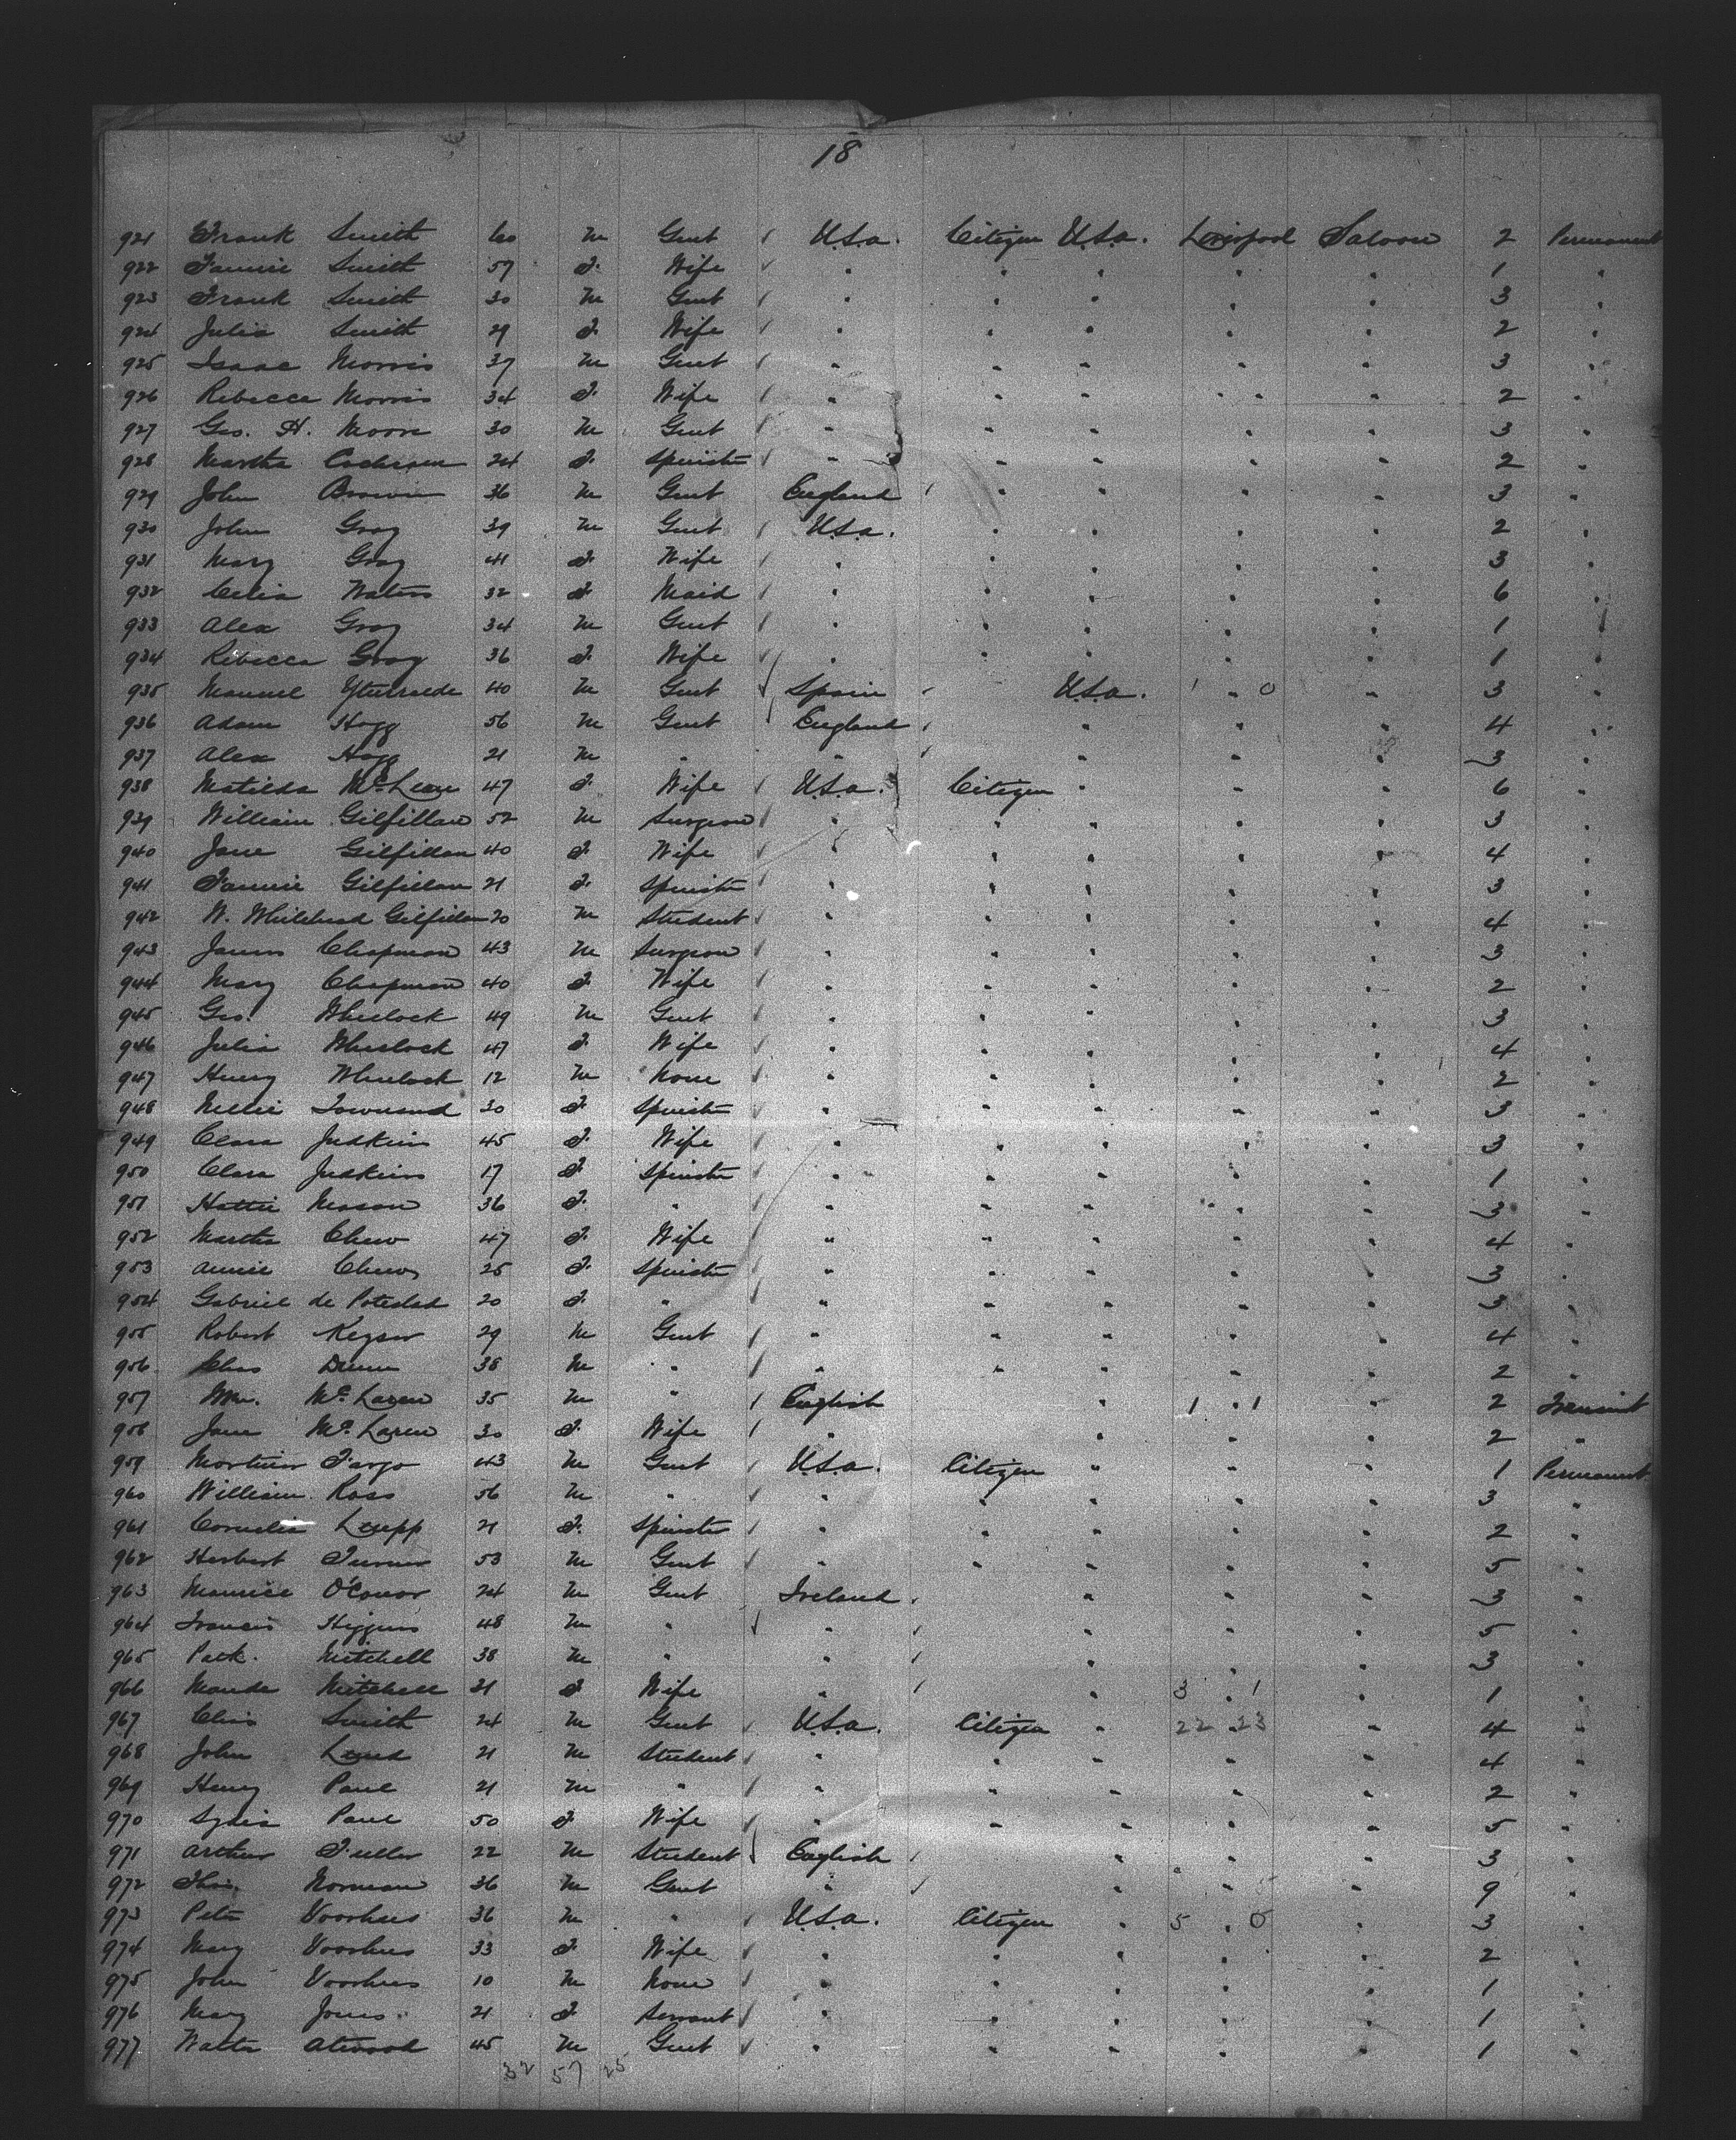 18
921 Frank Smith 60 M Gent U.S.a. Citizen U.S.a. Liverpool Saloon 2 Permanent
922 Fannie Smith 57 F. Wife " " " " " 1 "
923 Frank Smith 30 M Gent " " " " " 3 "
924 Julia Smith 29 F. Wife " " " " " 2 "
925 Isaac Morris 37 M Gent " " " " " 3 "
926 Rebecca Morris 34 F. Wife " " " " " 2 "
927 Geo. H. Moore 30 M Gent " " " " " 3 "
928 Martha Cochran 24 F. Spinster " " " " " 2 "
929 John Brown 36 M Gent England " " " " 3 "
930 John Gray 39 M Gent U.S.a. " " " " 2 "
931 Mary Gray 41 F. Wife " " " " " 3 "
932 Celia Waters 32 F. Maid " " " " " 6 "
933 Alex Gray 34 M Gent " " " " " 1 "
934 Rebecca Gray 36 F. Wife " " " " " 1 "
935 Manuel Yturralde 40 M Gent Spain U.S.a. 1 " 0 " 3 "
936 Adam Hogg 56 M Gent England " " " 4 "
937 Alex Hogg 21 M " " " " " 3 "
938 Matilda McLean 47 F. Wife U.S.a. Citizen " " " 6 "
939 William Gilfillan 52 M Surgeon " " " " " 3 "
940 Jane Gilfillan 40 F. Wife " " " " " 4 "
941 Fannie Gilfillan 21 F. Spinster " " " " " 3 "
942 W. Whitehead Gilfillan 20 M Student " " " " " 4 "
943 James Chapman 43 M Surgeon " " " " " 3 "
944 Mary Chapman 40 F. Wife " " " " " 2 "
945 Geo. Wheelock 49 M Gent " " " " " 3 "
946 Julia Wheelock 47 F. Wife " " " " " 4 "
947 Henry Wheelock 12 M None " " " " " 2 "
948 Nellie Townsend 30 F. Spinster " " " " " 3 "
949 Clara Judkins 45 F. Wife " " " " " 3 "
950 Clara Judkins 17 F. Spinster " " " " " 1 "
951 Hattie Mason 36 F. " " " " " " 3 "
952 Martha Chew 47 F. Wife " " " " " 4 "
953 Annie Chew 25 F. Spinster " " " " " 3 "
954 Gabriel de Potestad 20 F. " " " " " " 3 "
955 Robert Keyser 29 M Gent " " " " " 4 "
956 Chas Dunn 38 M " " " " " " 2 "
957 Wm. McLaren 35 M " English " 1 " 1 " 2 Transit
958 Jane McLaren 30 F. Wife " " " " 2 "
959 Mortimer Fargo 43 M Gent U.S.a. Citizen " " " 1 Permanent
960 William Ross 56 M " " " " " " 3 "
961 Cornelia Leupp 21 F. Spinster " " " " " 2 "
962 Herbert Turner 53 M Gent " " " " " 5 "
963 Maurice O'Conor 24 M Gent Ireland " " " 3 "
964 Francis Higgins 48 M " " " " " 5 "
965 Patk. Mitchell 38 M " " " " " 3 "
966 Maude Mitchell 21 F Wife " " 3 " 1 " 1 "
967 Chris Smith 24 M Gent U.S.a. Citizen " 22 " 23 " 4 "
968 John Lund 21 M Student " " " " " 4 "
969 Henry Paul 21 M " " " " " " 2 "
970 Lydia Paul 50 F Wife " " " " " 5 "
971 Arthur Fuller 22 M Student English " " " 3 "
972 Thos. Norman 36 M Gent " " " " 9 "
973 Peter Voorhees 36 M " U.S.a. Citizen " 5 " 0 " 3 "
974 Mary Voorhees 33 F. Wife " " " " " 2 "
975 John Voorhees 10 M None " " " " " 1 "
976 Mary Jones 21 F. Servant " " " " " 1 "
977 Walter Atwood 45 M Gent " " " " " 1 "
32 57 25